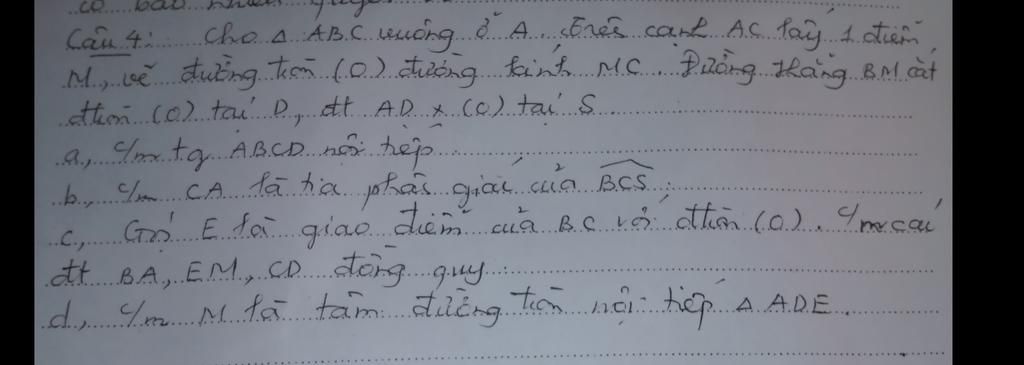 có bao nhiêu
Câu 4: Cho Δ ABC vuông ở A. trên cạnh AC lấy 1 điểm
M, vẽ đường tròn (O) đường kính MC. Đường thẳng BM cắt
đtròn (O) tại D, đt AD x (O) tại S.
a, c/m tg ABCD nội tiếp
b, c/m CA là tia phân giác của BCS.
c, Gọi E là giao điểm của BC với đtròn (O). c/m các
đt BA, EM, CD đồng quy.
d, c/m M là tâm đường tròn nội tiếp Δ ADE.